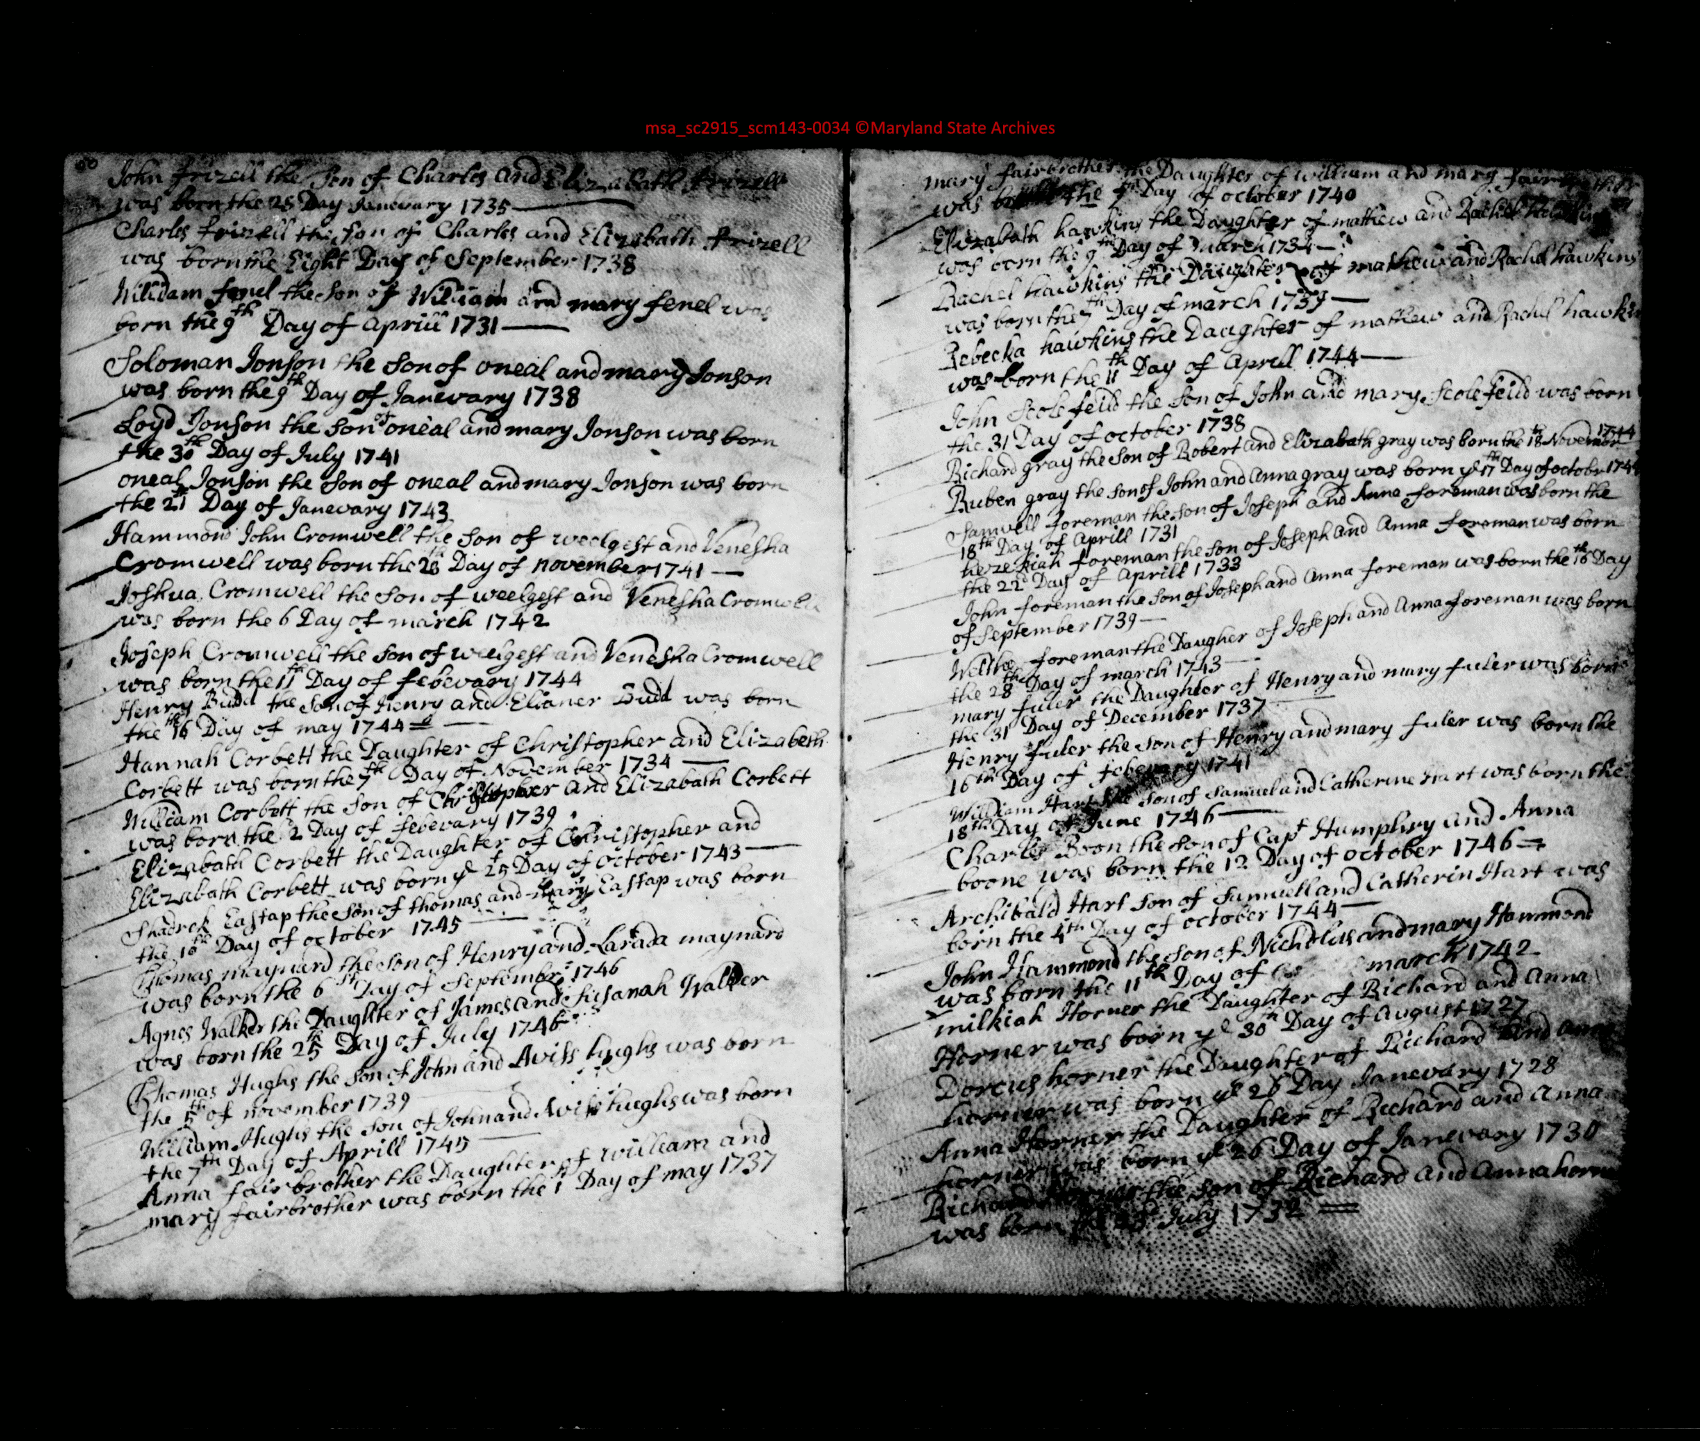 msa_sc2915_scm143-0034 ©Maryland State Archives
60
John Frizell the Son of Charles and Elizabath Frizell
was born the 25 Day Janevary 1735
Charles Frizell the Son of Charles and Elizabath Frizell
was born the Eight Day of September 1738
William fenel the Son of William and mary fenel was
born the 9th Day of Aprill 1731
Soloman Jonson the Son of oneal and mary Jonson
was born the 9th Day of Janevary 1738
Loyd Jonson the Son of oneal and mary Jonson was born
the 30th Day of July 1741
oneal Jonson the Son of oneal and mary Jonson was born
the 21 Day of Janevary 1743
Hammond John Cromwell the Son of weelgest and Venesha
Cromwell was born the 28 Day of november 1741
Joshua Cromwell the Son of weelgest and Venesha Cromwell
was born the 6 Day of march 1742
Joseph Cromwell the Son of weelgest and Venesha Cromwell
was born the 11th Day of febevary 1744
Henry Budd the Son of Henry and Elianer Budd was born
the 16th Day of may 1744
Hannah Corbett the Daughter of Christopher and Elizabeth
Corbett was born the 7th Day of November 1734
William Corbett the Son of Christopher and Elizabath Corbett
was born the 2 Day of febevary 1739
Elizabath Corbett the Daughter of Christopher and
Elizabath Corbett was born ye 25 Day of october 1743
Shadrek Eastap the Son of thomas and mary Eastap was born
the 10th Day of october 1745
Thomas maynard the Son of Henry and Sarada maynard
was born the 6th Day of September 1746
Agnes Walker the Daughter of James and Susanah Walker
was born the 25th Day of July 1746
Thomas Hughs the Son of John and Aviss hughs was born
the 5th of november 1739
William Hughs the Son of John and Aviss hughs was born
the 7th Day of Aprill 1745
Anna fairbrother the Daughter of william and
mary fairbrother was born the 1 Day of may 1737
mary fairbrother the Daughter of william and mary fairbrother
was born the Day of october 1740
Elizabath hawkins the Daughter of mathew and Rachel
was born the 9th Day of march 1734
Rachel hawkins the Daughter of mathew and Rachel hawkins
was born the 7th Day of march 1739
Rebecka hawkins the Daughter of mathew and Rachel hawkins
was born the 11th Day of Aprill 1744
John Scolefeild the Son of John and mary Scolefeild was born
the 31 Day of october 1738
Richard gray the Son of Robert and Elizabath gray was born the 18 November 1744
Ruben gray the son of John and Anna gray was born ye 17th Day of octobr 174
Samwell foreman the Son of Joseph and Anna foreman was born the
18th Day of Aprill 1731
hezekiah foreman the Son of Joseph and Anna foreman was born
the 22d Day of Aprill 1733
John foreman the Son of Joseph and Anna foreman was born the 16th Day
of September 1739
foreman the Daugher of Joseph and Anna foreman was born
the 28th Day of march 1743
mary fuler the Daughter of Henry and mary fuler was born
the 31 Day of December 1737
Henry fuler the Son of Henry and mary fuler was born the
16th Day of febevary 1741
William Hart the Son of Samuel and Catherine Hart was born the
18th Day of June 1746
Charls Boon the Son of Capt Humphry and Anna
boone was born the 12 Day of october 1746
Archibald Hart Son of Samuell and Catherin Hart was
born the 4th Day of october 1744
John Hammond the Son of Nicholus and mary Hammond
was born the 11th Day of march 1742
milkiah Horner the Daughter of Richard and Anna
Horner was born ye 30th Day of August 1727
Dorcus horner the Daughter of Richard and anna
horner was born ye 26 Day Janevary 1728
Anna Horner the Daughter of Richard and Anna
horner was born ye 26 Day of Janevary 1730
Richard Horner the Son of Richard and Anna horner
was born of July 1732